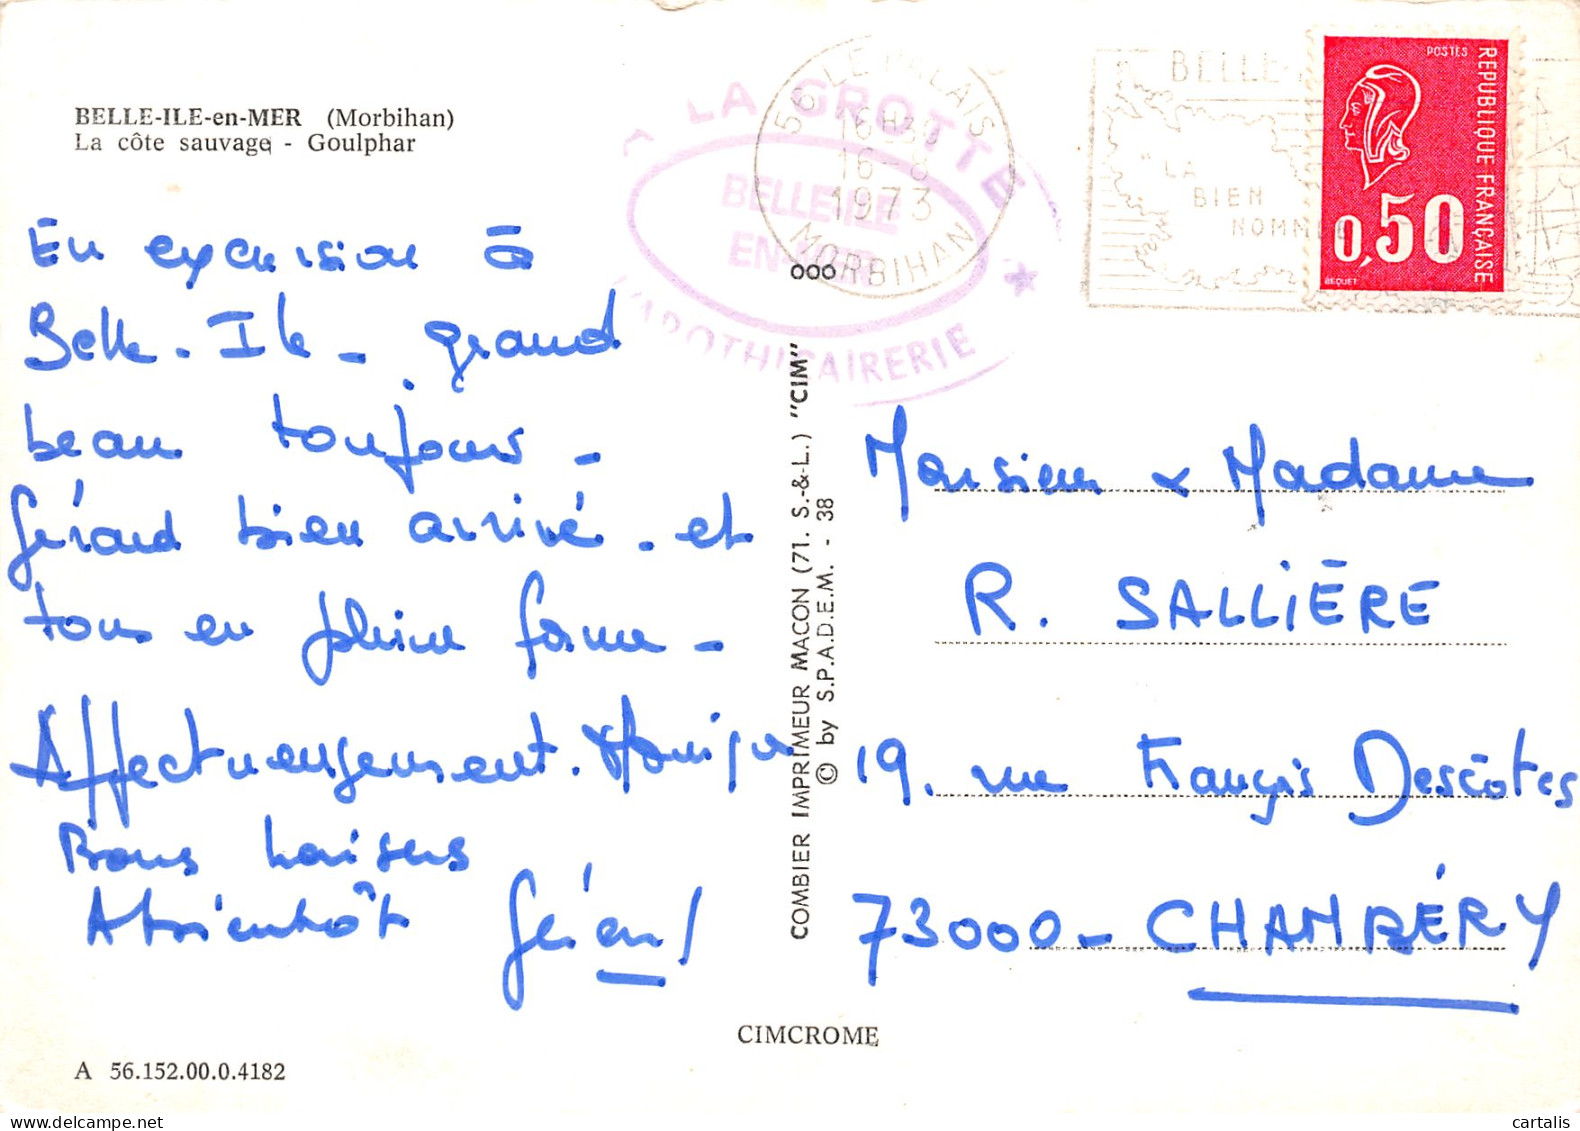 BELLE-ILE-en-MER (Morbihan)
La côte sauvage - Goulphar
En excursion à
Belle-Ile - grand
beau toujours -
Gérard bien arrivé - et
tous en pleine forme -
Affectueusement. Monique
Bons baisers
A bientôt Gérard
A 56.152.00.0.4182
CIMCROME
COMBIER IMPRIMEUR MACON (71. S.-&-L.) "CIM"
© by S.P.A.D.E.M. - 38
A LA GROTTE
BELLE ILE
EN MER
L'APOTHICAIRERIE
56 LE PALAIS
16H30
16-8
1973
MORBIHAN
BELLE-
"LA
BIEN
NOMMÉE
POSTES
REPUBLIQUE FRANÇAISE
0,50
BEQUET
Monsieur & Madame
R. SALLIÈRE
19. rue François Descôtes
73000 - CHAMBÉRY